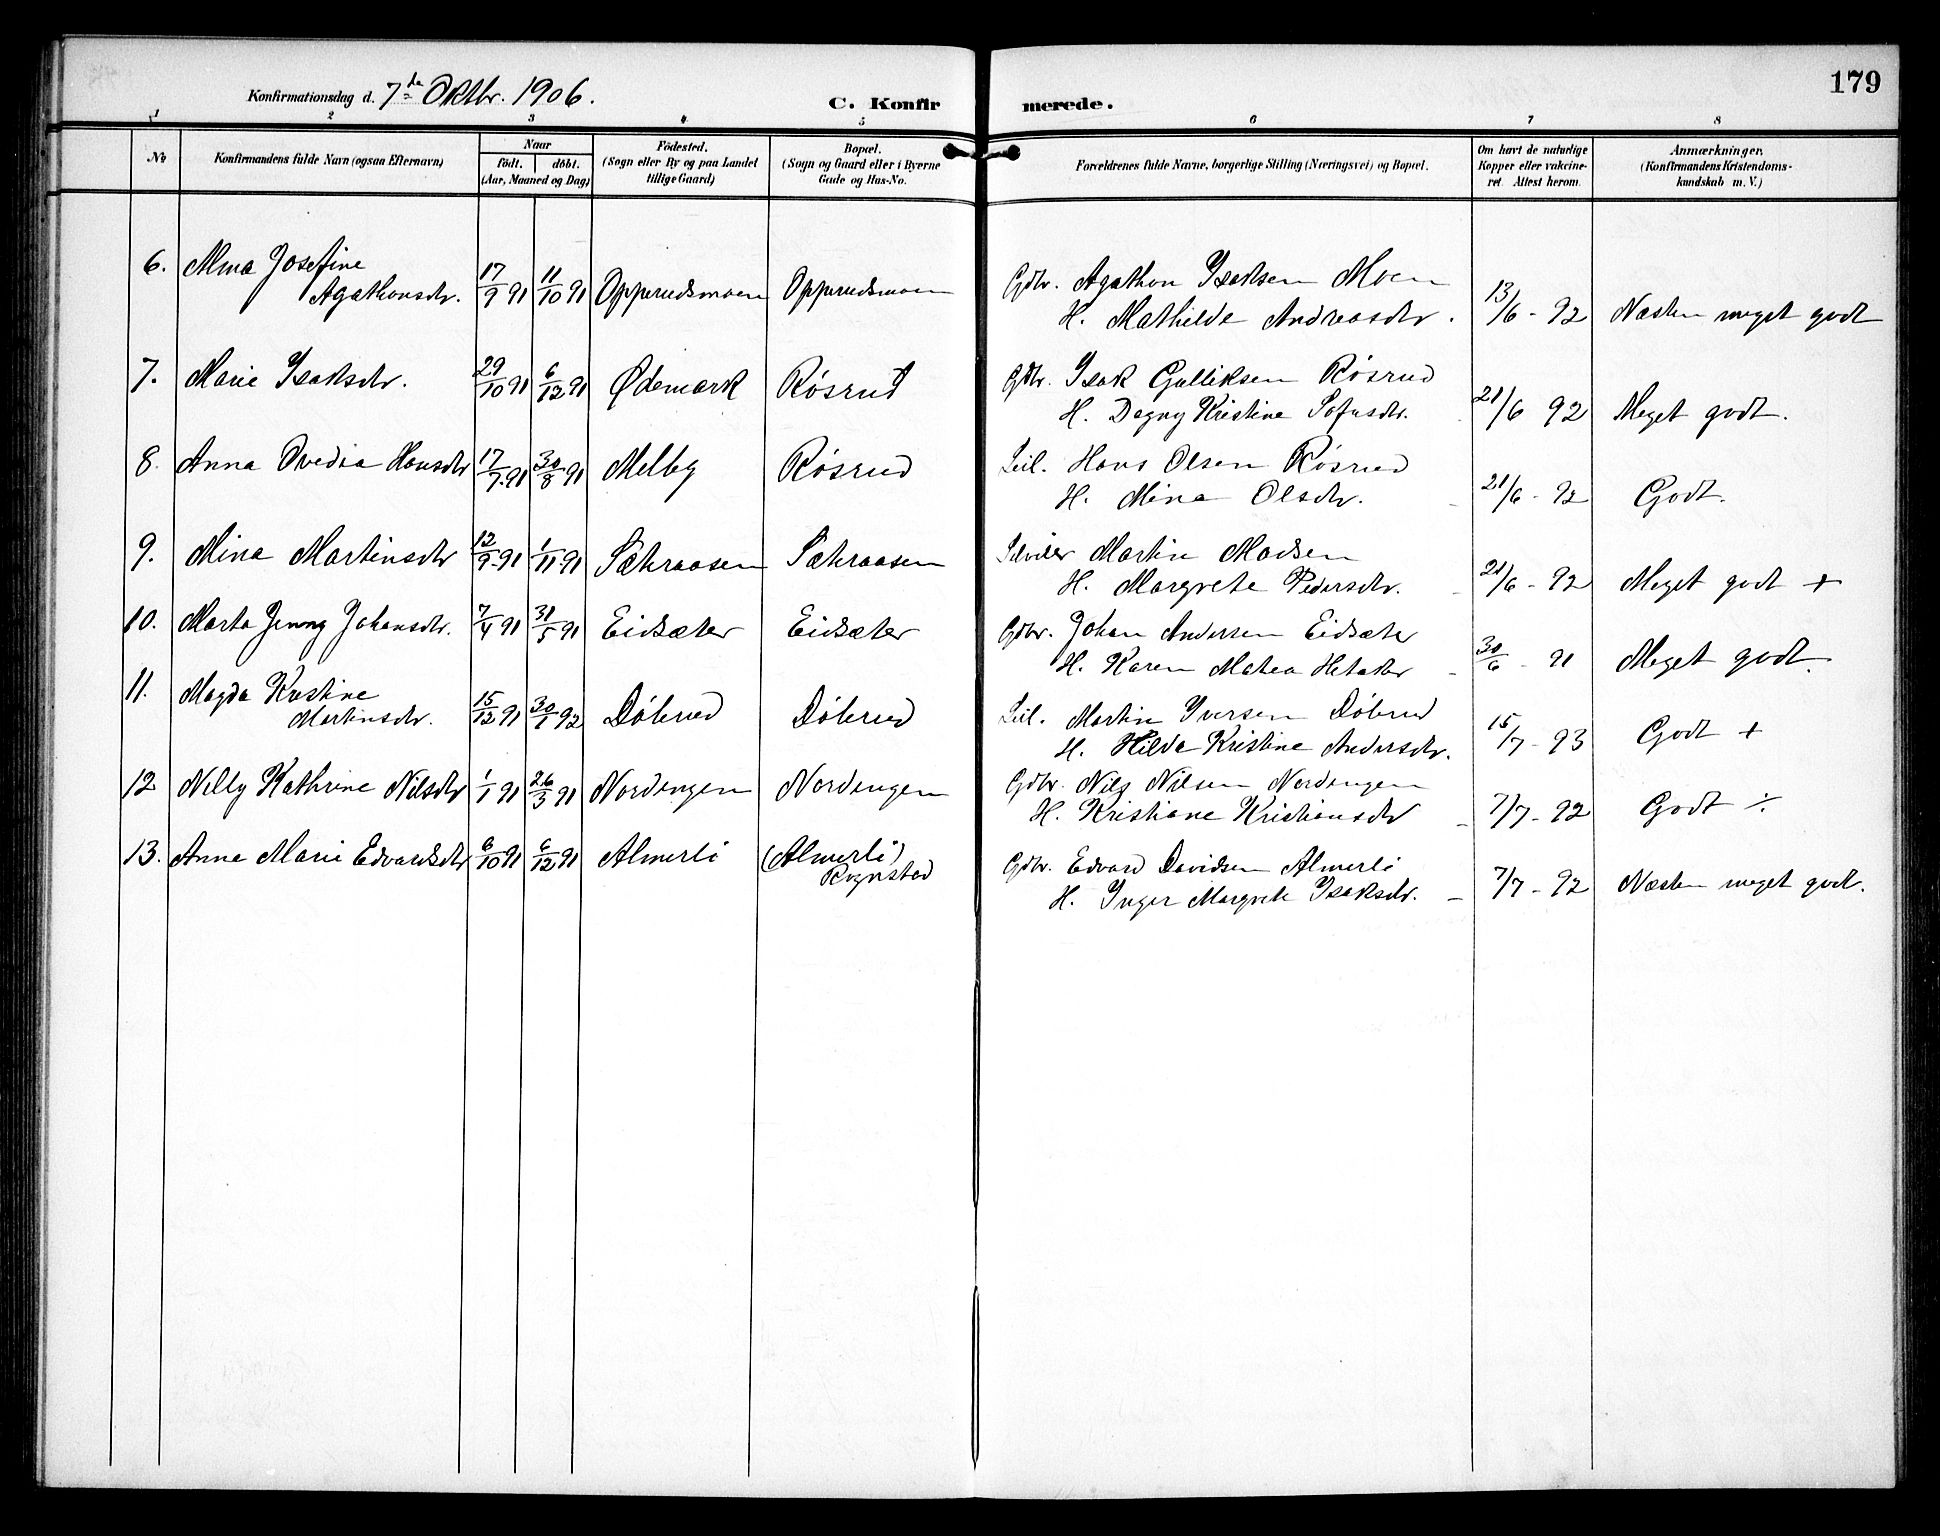 179
Konfirmationsdag d. 7de Oktbr. 1906.
C. Konfirmerede.
1 2 3 4 5 6 7 8
No
Konfirmandens fulde Navn (ogsaa Efternavn)
Naar
födt. döbt.
(Aar, Maaned og Dag)
Födested.
(Sogn eller By og paa Landet
tillige Gaard)
Bopæl.
(Sogn og Gaard eller i Byerne
Gade og Hus-No.
Forældrenes fulde Navne, borgerlige Stilling (Næringsvei) og Bopæl.
Om havt de naturlige
Kopper eller vakcine-
ret. Attest herom.
Anmærkninger,
(Konfirmandens Kristendoms-
kundskab m. V.)
6. Alma Josefine
Agathonsdtr. 17/9 91 11/10 91 Opperudsmoen Opperudsmoen Gdbr. Agathon Isaksen Moen
H. Mathilde Andreasdtr. 13/6 - 92 Næsten meget godt
7. Marie Isaksdtr. 29/10 91 6/12 91 Ødemark Røsrud Gdbr. Isak Gulliksen Røsrud
H. Dagny Kristine Sofusdtr. 21/6 92 Meget godt.
8. Anna Ovedia Hansdtr 17/7 91 30/8 91 Melby Røsrud Leil. Hans Olsen Røsrud
H. Mina Olsdtr. 21/6 - 92 Godt.
9. Mina Martinsdtr 12/9 91 1/11 91 Sætraasen Sætraasen Martin Madsen
H. Margrete Pedersdtr. 21/6 - 92 Meget godt +
10. Marta Jenny Johansdtr. 7/4 91 31/5 91 Eidsæter Eidsæter Gdbr. Johan Andersen Eidsæter
H. Karen Matea 30/6 - 91 Meget godt.
11. Magda Kristine
Martinsdtr. 15/12 91 30/1 92 Døbrud Døbrud Leil. Martin Iversen Døbrud
H. Hilda Kristine Andersdtr. 15/7 - 93 Godt +
12 Nelly Kathrine Nilsdtr 1/1 91 26/3 91 Nordengen Nordengen Gdbr. Nils Nilsen Nordengen
H. Kristiane Kristiansdtr - 7/7 - 92 Godt ÷
13. Anna Marie Edvardsdtr 6/10 91 6/12 91 Almerli (Almerli)
Rognstad Gdbr. Edvard Davidsen Almerli
H. Inger Margrete Isaksdtr. - 7/7 - 92 Næsten meget godt.